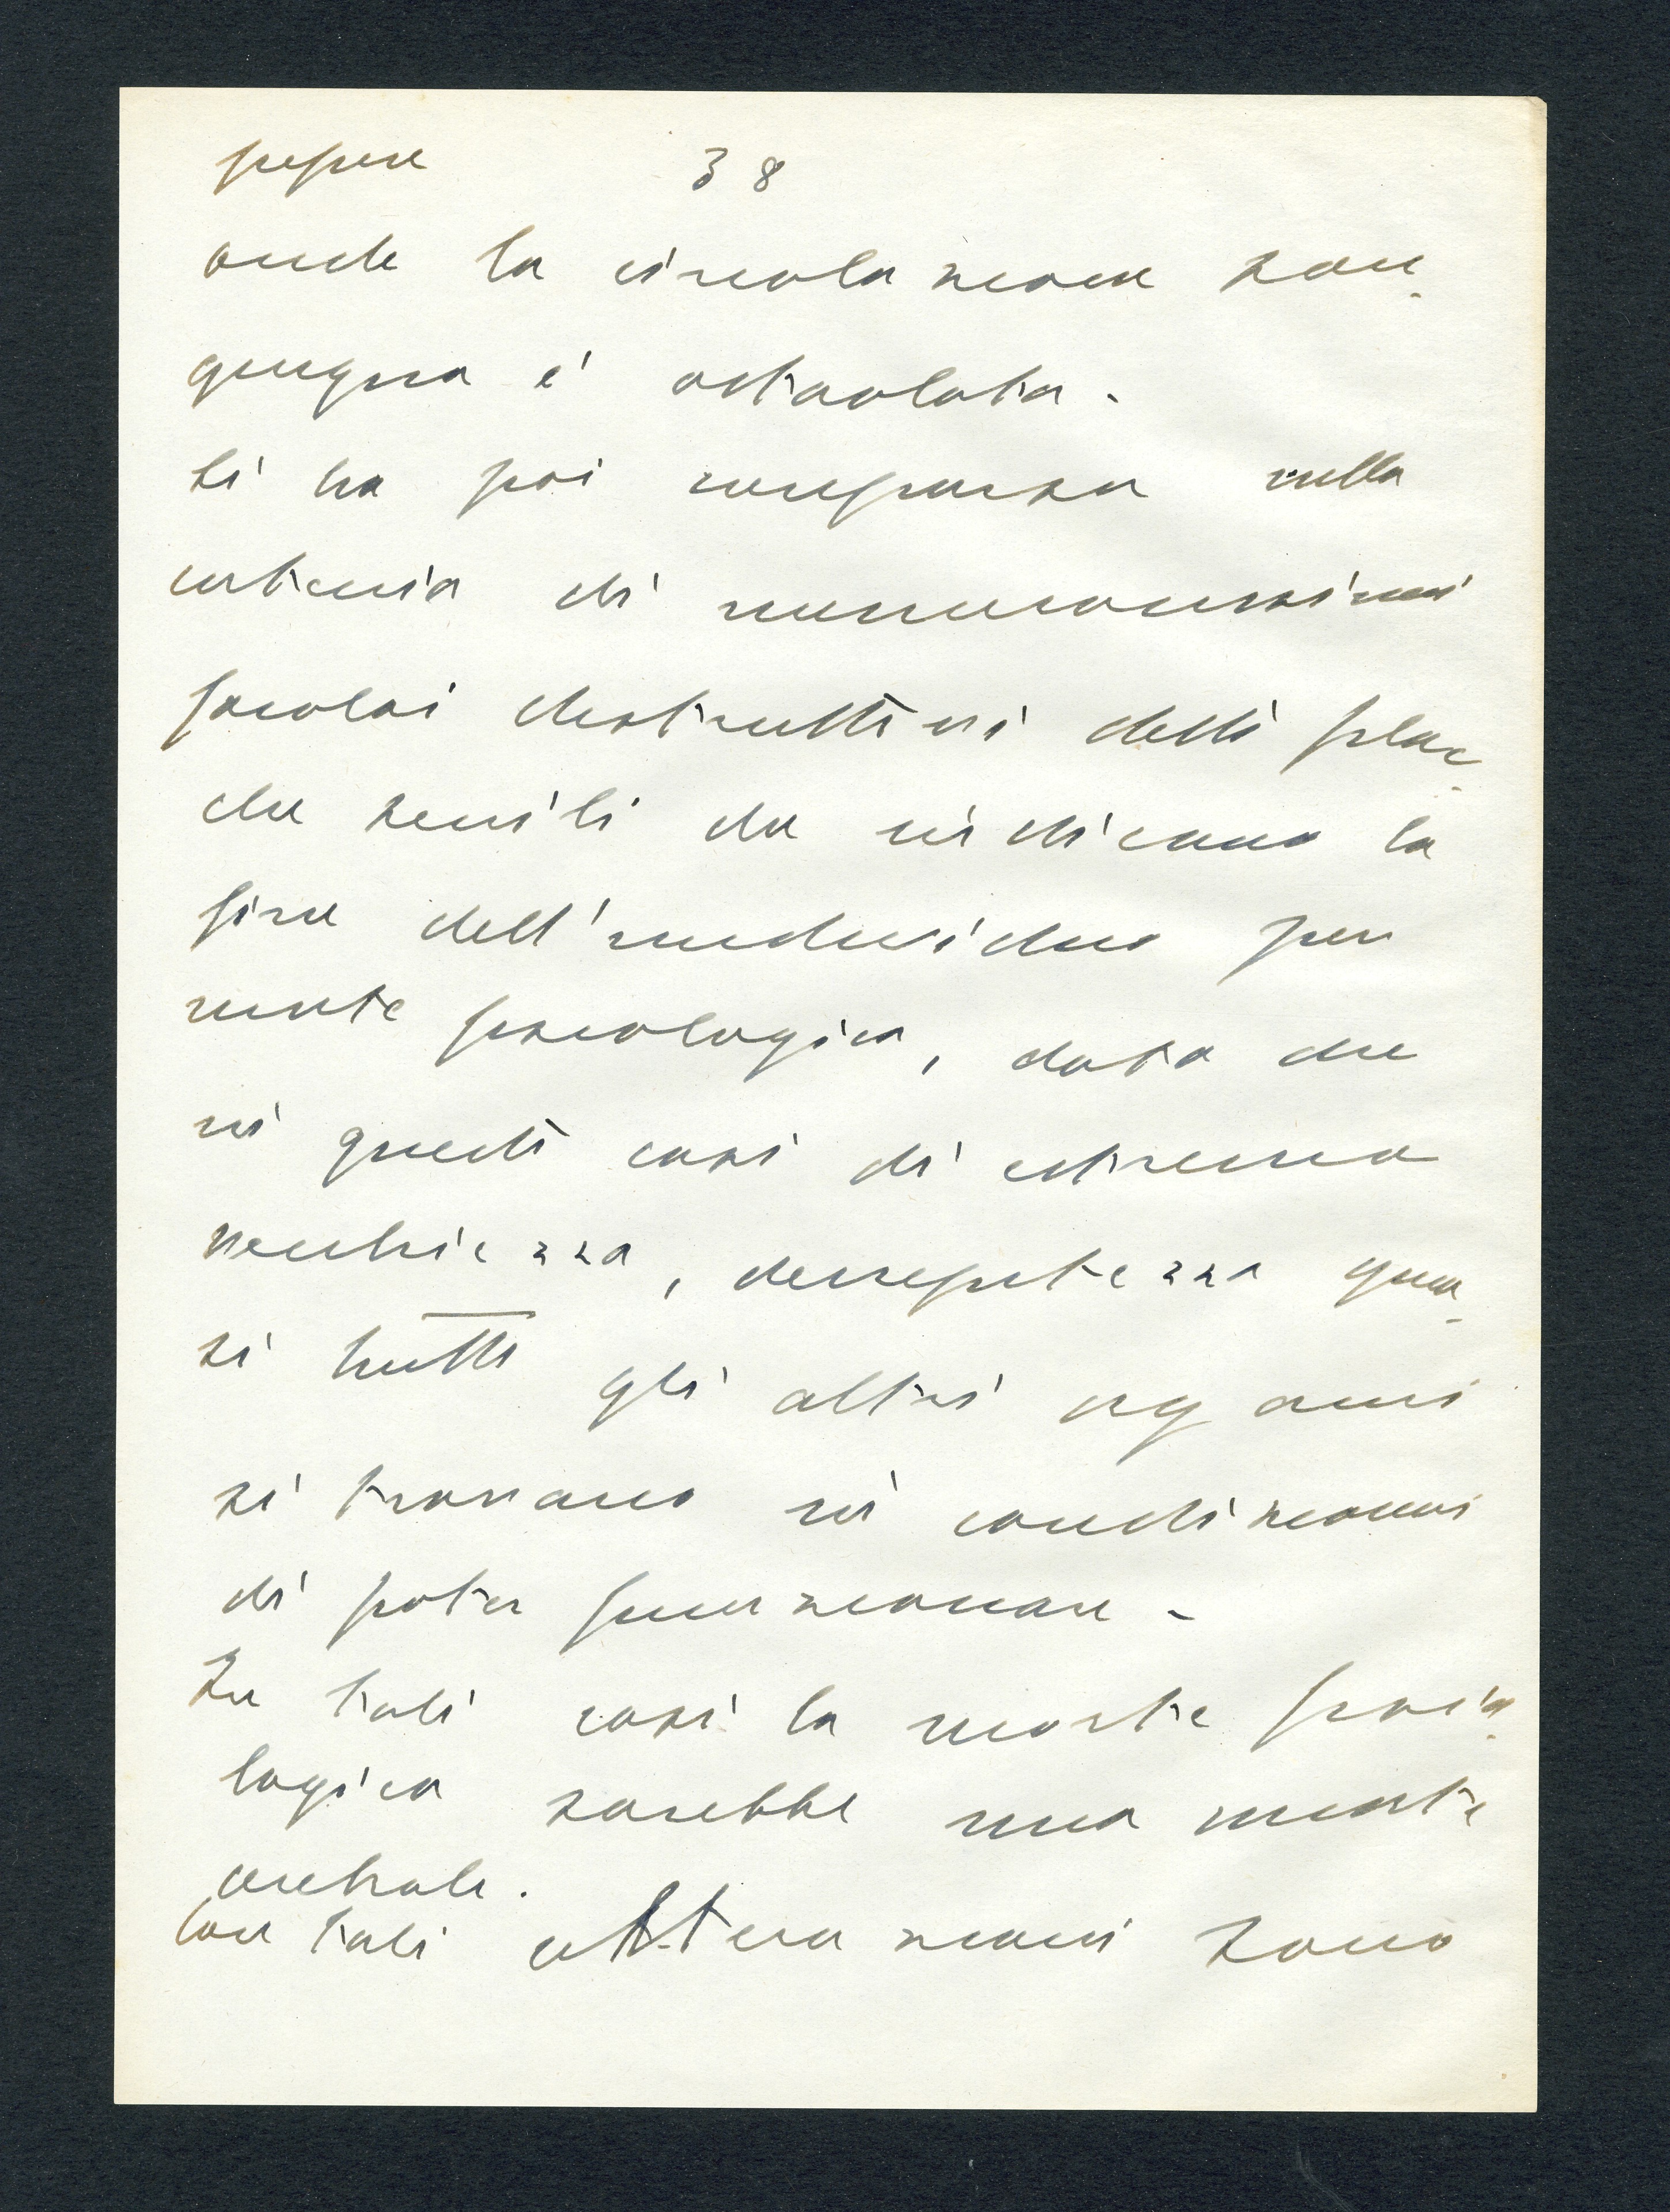 38
onde la circolazione san-
guigna è ostacolata.
Si ha poi comparsa nella
corteccia di numerosissimi
focolai destruttivi detti plac-
che senili che indicano la
fine dell'individuo per
morte fisiologica, dato che
in questi casi di estrema
vecchiezza, decrepitezza qua-
si tutti gli altri organi
si trovano in condizioni
di poter funzionare.
In tali casi la morte fisio-
logica sarebbe una morte
cerebrale.
Con tali alterazioni sono